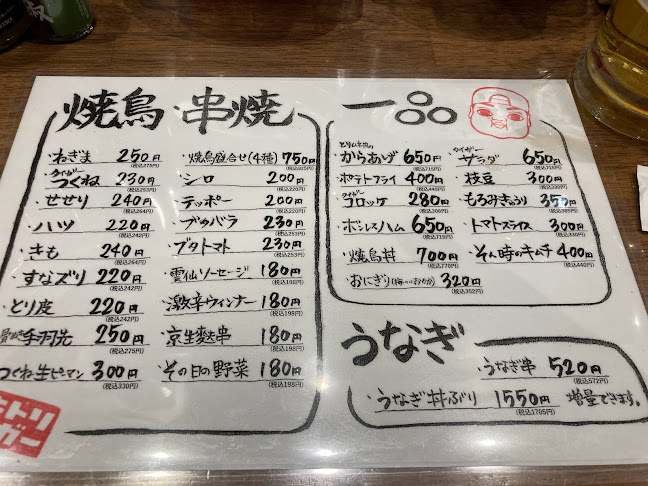 焼鳥・串焼
・ねぎま 250円
(税込275円)
タイガー
・つくね 230円
(税込253円)
・せせり 240円
(税込264円)
・ハツ 220円
(税込242円)
・きも 240円
(税込264円)
・すなズリ 220円
(税込242円)
・とり皮 220円
(税込242円)
手羽先 250円
(税込275円)
つくね生ピーマン 300円
(税込330円)
・焼鳥盛合せ(4種) 750円
(税込825円)
・シロ 200円
(税込220円)
・テッポー 200円
(税込220円)
・ブタバラ 230円
(税込253円)
・ブタトマト 230円
(税込253円)
・雲仙ソーセージ 180円
(税込198円)
・激辛ウィンナー 180円
(税込198円)
・京生麩串 180円
(税込198円)
・その日の野菜 180円
(税込198円)
一品
からあげ 650円
(税込715円)
・ポテトフライ 400円
(税込440円)
タイガー
・コロッケ 280円
(税込308円)
・ボンレスハム 650円
(税込715円)
・焼鳥丼 700円
(税込770円)
・おにぎり(梅 おかか) 320円
(税込352円)
タイガー
・サラダ 650円
(税込715円)
・枝豆 300円
(税込330円)
・もろみきゅうり 350円
(税込385円)
・トマトスライス 300円
(税込330円)
・その時のキムチ 400円
(税込440円)
うなぎ
・うなぎ串 520円
(税込572円)
・うなぎ丼ぶり 1550円 増量できます。
(税込1705円)
トリ
ガー